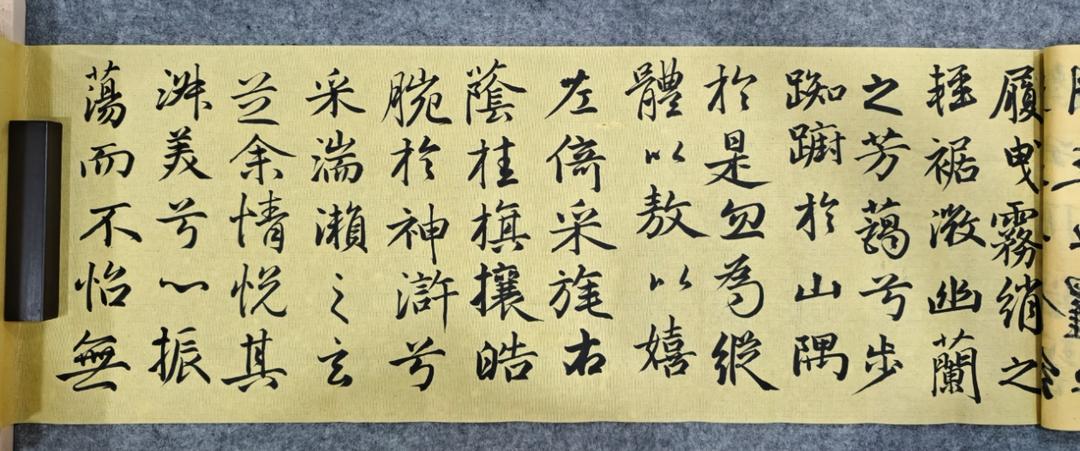 履曳霧綃之
輕裾微幽蘭
之芳藹兮步
踟躕於山隅
於是忽焉縱
體以敖以嬉
左倚采旄右
蔭桂旗攘皓
腕於神滸兮
采湍瀨之玄
芝余情悅其
淑美兮心振
蕩而不怡無